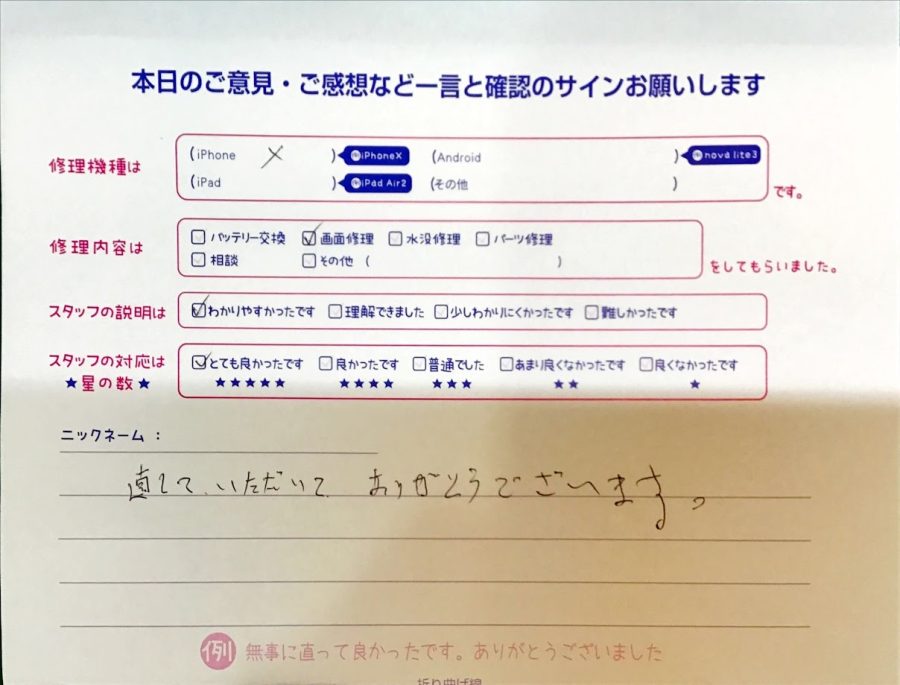 本日のご意見・ご感想など一言と確認のサインお願いします
修理機種は (iPhone X ) 例iPhoneX (Android ) 例nova lite3
(iPad ) 例iPad Air2 (その他 ) です。
修理内容は □バッテリー交換 ☑画面修理 □水没修理 □パーツ修理
□相談 □その他 ( ) をしてもらいました。
スタッフの説明は ☑わかりやすかったです □理解できました □少しわかりにくかったです □難しかったです
スタッフの対応は ☑とても良かったです □良かったです □普通でした □あまり良くなかったです □良くなかったです
★星の数★ ★★★★★ ★★★★ ★★★ ★★ ★
ニックネーム：
直して、いただいて ありがとうございます。
例 無事に直って良かったです。ありがとうございました
折り曲げ線